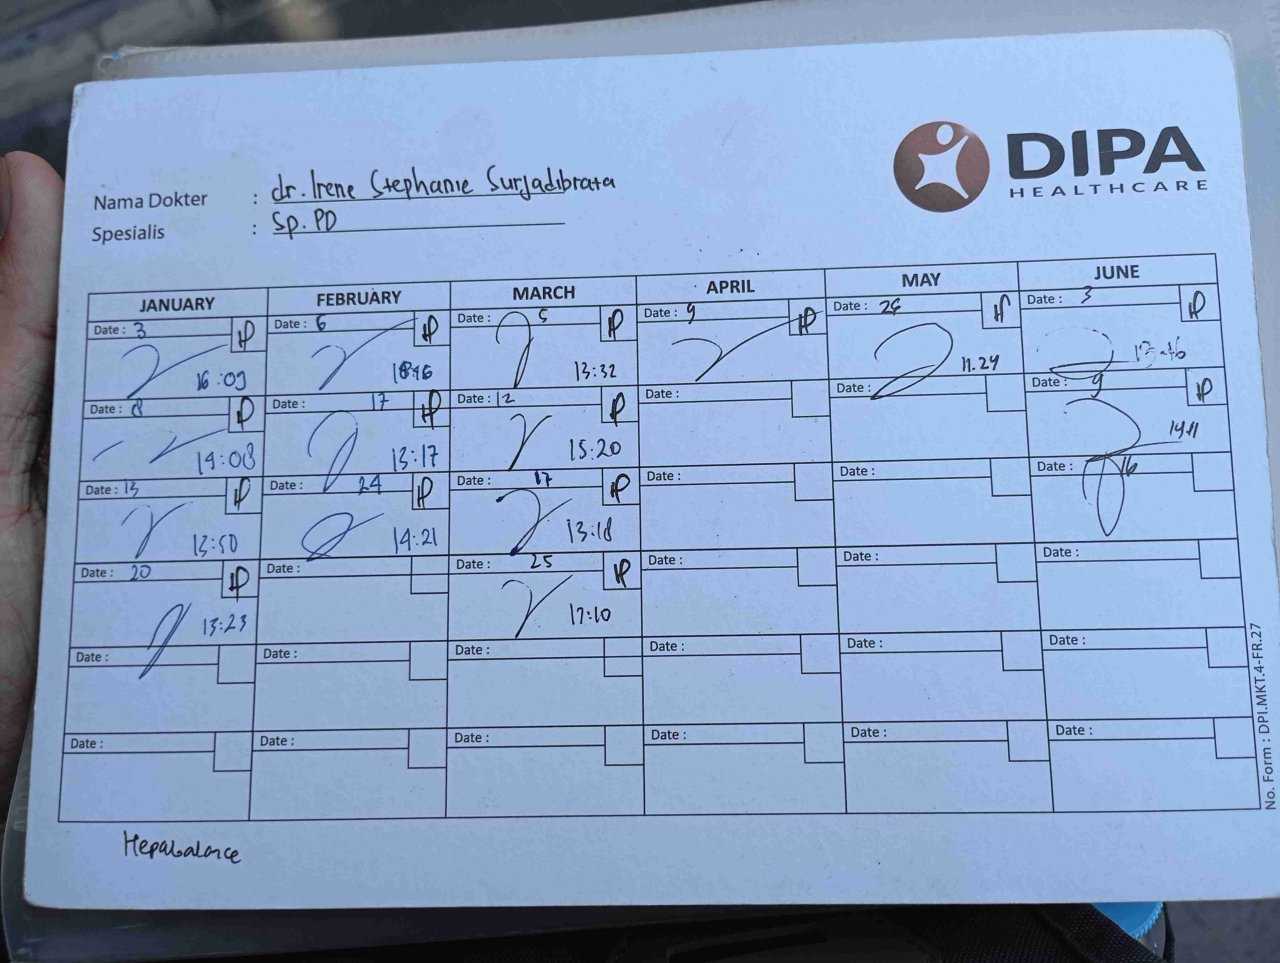 DIPA
HEALTHCARE
Nama Dokter : dr. Irene Stephanie Surjadibrata
Spesialis : Sp.PD
JANUARY FEBRUARY MARCH APRIL MAY JUNE
Date : 3 Date : 6 Date : 5 Date : 9 Date : 26 Date : 3
16:09 13:32 11.29 13.46
Date : 8 Date : 17 Date : 12 Date : Date : Date : 9
14:08 13:17 15:20 14.11
Date : 13 Date : 24 Date : 17 Date : Date : Date : 16
13:50 14:21 13:18
Date : 20 Date : Date : 25 Date : Date : Date :
13:23 17:10
Date : Date : Date : Date : Date : Date :
Date : Date : Date : Date : Date : Date :
Hepabalance
No. Form : DPI.MKT.4-FR.27